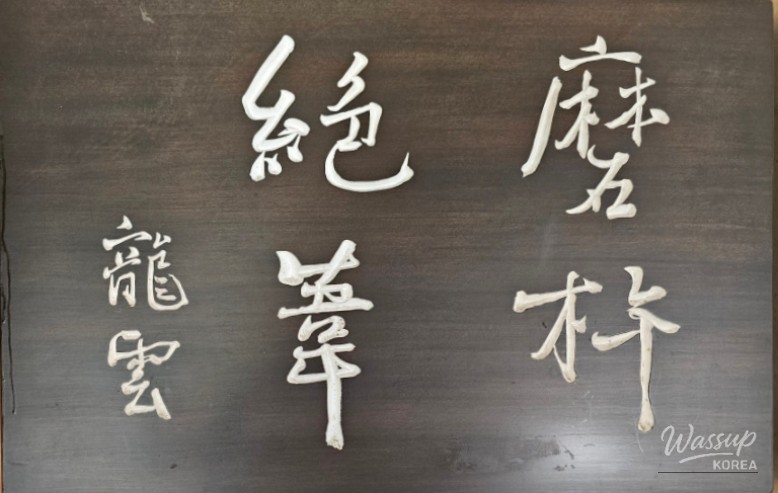 磨杵
絕葦
龍雲
Wassup
KOREA